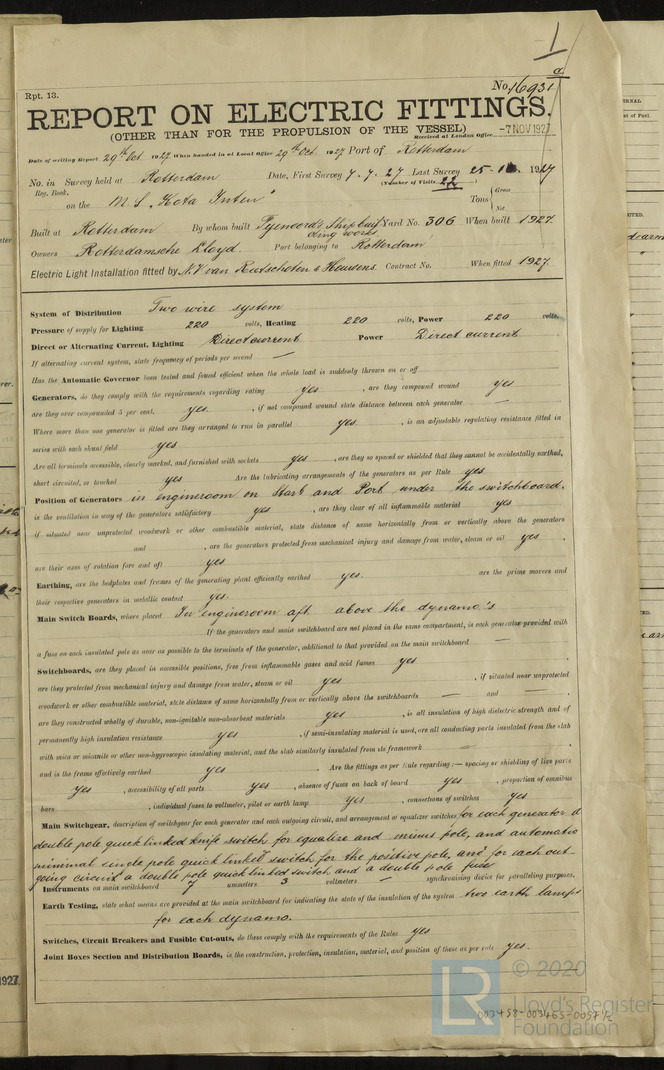 1
a
Rpt. 13.
No. 16931
REPORT ON ELECTRIC FITTINGS.
(OTHER THAN FOR THE PROPULSION OF THE VESSEL)
Received at London Office -7 NOV 1927
Date of writing Report 29th Oct 1927 When handed in at Local Office 29th Oct. 1927 Port of Rotterdam
No. in Survey held at Rotterdam Date, First Survey 7.7.27 Last Survey 25-10. 1927
Reg. Book. (Number of Visits 22)
on the M.S. "Kota Inten" Tons { Gross Net
Built at Rotterdam By whom built Fyenoord's Shipbuilding works Yard No. 306 When built 1927.
Owners Rotterdamsche Lloyd. Port belonging to Rotterdam
Electric Light Installation fitted by N.V. van Rietschoten & Houwens. Contract No. When fitted 1927.
System of Distribution Two wire system
Pressure of supply for Lighting 220 volts, Heating 220 volts, Power 220 volts.
Direct or Alternating Current, Lighting Direct current Power Direct current
If alternating current system, state frequency of periods per second —
Has the Automatic Governor been tested and found efficient when the whole load is suddenly thrown on or off
Generators, do they comply with the requirements regarding rating yes, are they compound wound yes
are they over compounded 5 per cent. yes., if not compound wound state distance between each generator —
Where more than one generator is fitted are they arranged to run in parallel yes., is an adjustable regulating resistance fitted in
series with each shunt field yes
Are all terminals accessible, clearly marked, and furnished with sockets yes, are they so spaced or shielded that they cannot be accidentally earthed,
short circuited, or touched yes Are the lubricating arrangements of the generators as per Rule yes
Position of Generators in engineroom on Start and Port under the switchboard.
is the ventilation in way of the generators satisfactory yes, are they clear of all inflammable material yes
if situated near unprotected woodwork or other combustible material, state distance of same horizontally from or vertically above the generators
and , are the generators protected from mechanical injury and damage from water, steam or oil yes.
are their axes of rotation fore and aft yes
Earthing, are the bedplates and frames of the generating plant efficiently earthed yes. are the prime movers and
their respective generators in metallic contact yes.
Main Switch Boards, where placed In engineroom aft above the dynamo's
If the generators and main switchboard are not placed in the same compartment, is each generator provided with
a fuse on each insulated pole as near as possible to the terminals of the generator, additional to that provided on the main switchboard —
Switchboards, are they placed in accessible positions, free from inflammable gases and acid fumes yes.
are they protected from mechanical injury and damage from water, steam or oil yes, if situated near unprotected
woodwork or other combustible material, state distance of same horizontally from or vertically above the switchboards — and —,
are they constructed wholly of durable, non-ignitable non-absorbent materials yes, is all insulation of high dielectric strength and of
permanently high insulation resistance yes, if semi-insulating material is used, are all conducting parts insulated from the slab
with mica or micanite or other non-hygroscopic insulating material, and the slab similarly insulated from its framework —,
and is the frame effectively earthed yes. Are the fittings as per Rule regarding:— spacing or shielding of live parts
yes, accessibility of all parts yes, absence of fuses on back of board yes, proportion of omnibus
bars , individual fuses to voltmeter, pilot or earth lamp yes, connections of switches yes
Main Switchgear, description of switchgear for each generator and each outgoing circuit, and arrangement of equalizer switches for each generator a
double pole quick linked knife switch for equalize and minus pole, and automatic
minimal single pole quick linked switch for the positive pole, and for each out
going circuit a double pole quick linked switch and a double pole fuse
Instruments on main switchboard 7 ammeters 3 voltmeters — synchronising device for paralleling purposes.
Earth Testing, state what means are provided at the main switchboard for indicating the state of the insulation of the system two earth lamps
for each dynamo.
Switches, Circuit Breakers and Fusible Cut-outs, do these comply with the requirements of the Rules yes
Joint Boxes Section and Distribution Boards, is the construction, protection, insulation, material, and position of these as per rule yes.
LR © 2020
Lloyd's Register
Foundation
003458-003465-0057 1/2
1927.